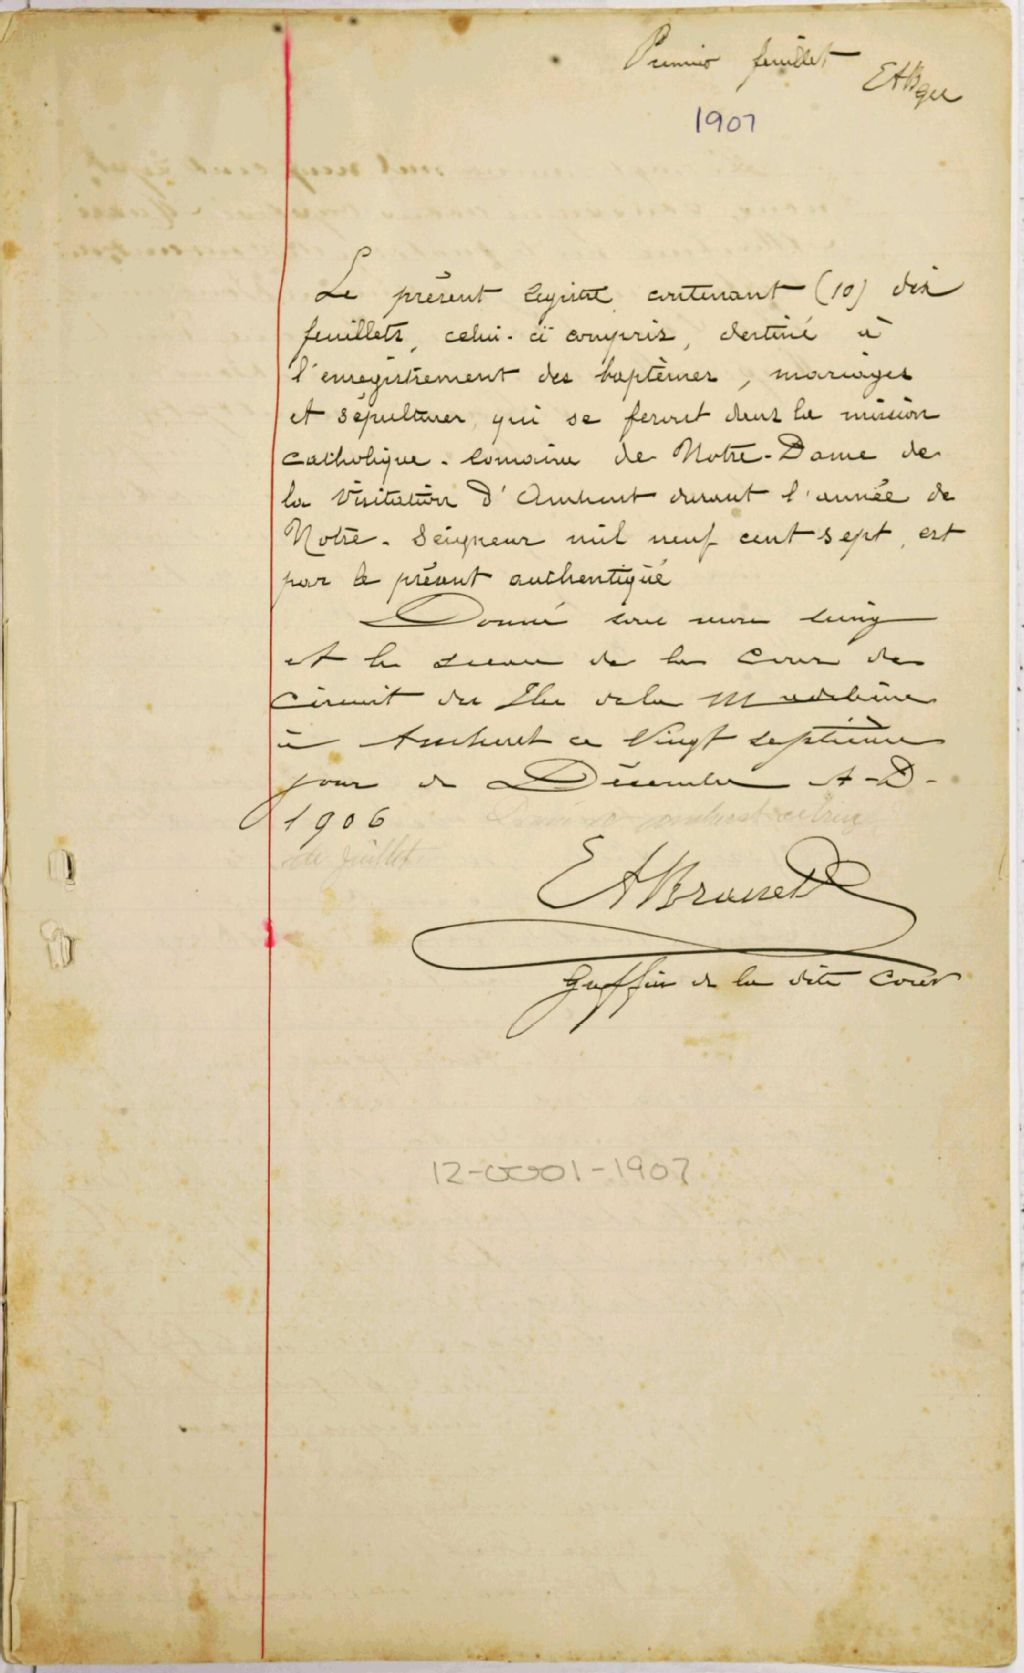 Premier feuillet EAB gcc
1907
Le présent registre contenant (10) dix
feuillets, celui-ci compris, destiné à
l'enregistrement des baptêmes, mariages
et sépultures, qui se feront dans la mission
catholique-romaine de Notre-Dame de
la Visitation d'Amherst durant l'année de
Notre-Seigneur mil neuf cent sept, est
par le présent authentiqué
Donné sous mon seing
et le sceau de la Cour de
Circuit des Iles de la Madeleine
à Amherst ce Vingt septième
jour de Décembre A-D-
1906
de juillet
EABrasset
Greffier de la dite Cour
12-0001-1907